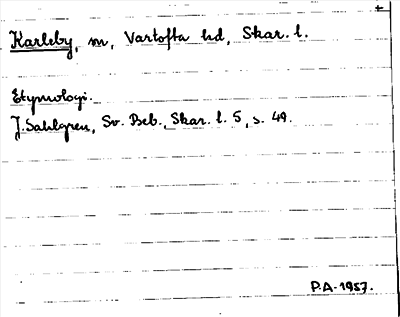 +
Karleby, m, Vartofta hd, Skar. l.
Etymologi.
J. Sahlgren, Sv. Beb., Skar. l. 5, s. 49.
P.A. 1957.